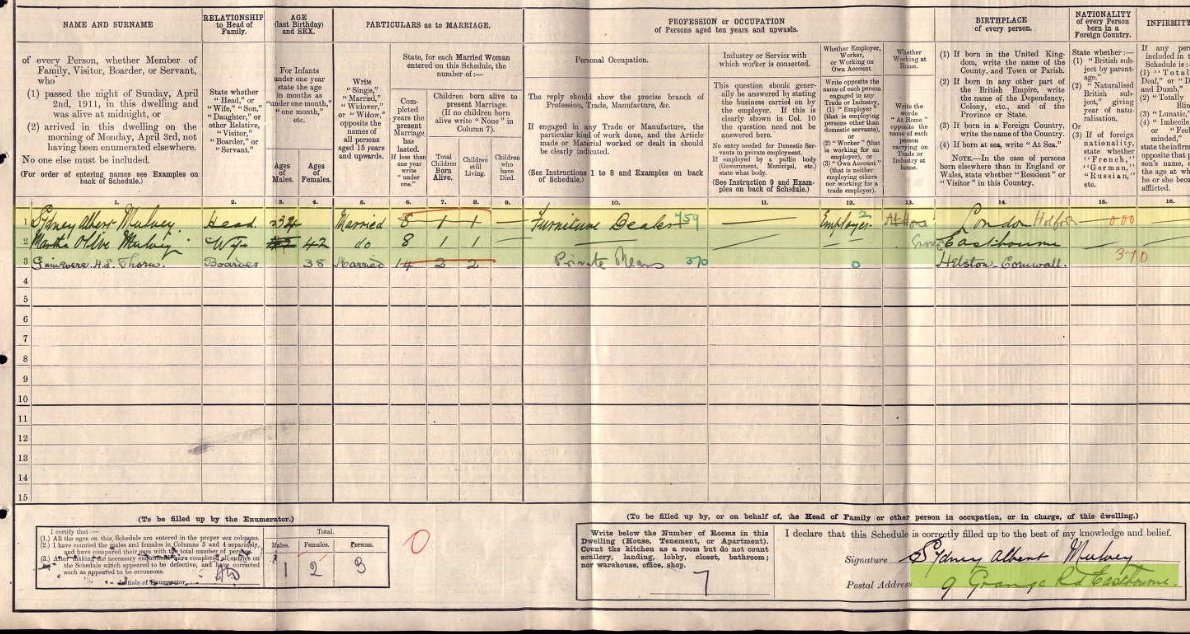 NAME AND SURNAME
of every Person, whether Member of
Family, Visitor, Boarder, or Servant,
who
(1) passed the night of Sunday, April
2nd, 1911, in this dwelling and
was alive at midnight, or
(2) arrived in this dwelling on the
morning of Monday, April 3rd, not
having been enumerated elsewhere.
No one else must be included.
(For order of entering names see Examples on
back of Schedule.)
RELATIONSHIP
to Head of
Family.
State whether
"Head," or
"Wife," "Son,"
"Daughter," or
other Relative,
"Visitor,"
"Boarder," or
"Servant."
AGE
(last Birthday)
and SEX.
For Infants
under one year
state the age
in months as
"under one month,"
"one month,"
etc.
Ages
of
Males.
Ages
of
Females.
PARTICULARS as to MARRIAGE.
Write
"Single,"
"Married,"
"Widower,"
or "Widow,"
opposite the
names of
all persons
aged 15 years
and upwards.
State, for each Married Woman
entered on this Schedule, the
number of:—
Com-
pleted
years the
present
Marriage
has
lasted.
If less than
one year
write
"under
one."
Children born alive to
present Marriage.
(If no children born
alive write "None" in
Column 7).
Total
Children
Born
Alive.
Children
still
Living.
Children
who
have
Died.
PROFESSION or OCCUPATION
of Persons aged ten years and upwards.
Personal Occupation.
The reply should show the precise branch of
Profession, Trade, Manufacture, &c.
If engaged in any Trade or Manufacture, the
particular kind of work done, and the Article
made or Material worked or dealt in should
be clearly indicated.
(See Instructions 1 to 8 and Examples on back
of Schedule.)
Industry or Service with
which worker is connected.
This question should gener-
ally be answered by stating
the business carried on by
the employer. If this is
clearly shown in Col. 10
the question need not be
answered here.
No entry needed for Domestic Ser-
vants in private employment.
If employed by a public body
(Government, Municipal, etc.)
state what body.
(See Instruction 9 and Exam-
ples on back of Schedule.)
Whether Employer,
Worker,
or Working on
Own Account.
Write opposite the
name of each person
engaged in any
Trade or Industry,
(1) "Employer"
(that is employing
persons other than
domestic servants),
or
(2) "Worker" (that
is working for an
employer), or
(3) "Own Account"
(that is neither
employing others
nor working for a
trade employer).
Whether
Working at
Home.
Write the
words
"At Home"
opposite the
name of each
person
carrying on
Trade or
Industry at
home.
BIRTHPLACE
of every person.
(1) If born in the United King-
dom, write the name of the
County, and Town or Parish.
(2) If born in any other part of
the British Empire, write
the name of the Dependency,
Colony, etc., and of the
Province or State.
(3) If born in a Foreign Country,
write the name of the Country.
(4) If born at sea, write "At Sea."
NOTE.—In the case of persons
born elsewhere than in England or
Wales, state whether "Resident" or
"Visitor" in this Country.
NATIONALITY
of every Person
born in a
Foreign Country.
State whether:—
(1) "British
subject by
parent-
age."
(2) "Naturalised
British sub-
ject," giving
year of natu-
ralisation.
Or
(3) If of foreign
nationality,
state whether
"French,"
"German,"
"Russian,"
etc.
INFIRMITY
1. 2. 3. 4. 5. 6. 7. 8. 9. 10. 11. 12. 13. 14. 15. 16.
1 Sydney Albert Mulvey Head 34 Married 8 1 1 — Furniture Dealer 759 — Employer 2 London 000
2 Martha Olive Mulvey Wife 42 do 8 1 1 — Eastbourne
3 Thorn Boarder 38 Married 14 2 2 Private Means 370 0 Helston Cornwall. 370
4
5
6
7
8
9
10
11
12
13
14
15
(To be filled up by the Enumerator.)
I certify that:—
(1.) All the ages on this Schedule are entered in the proper sex columns.
Total.
Males. Females. Persons.
1 2 3
0
(To be filled up by, or on behalf of, the Head of Family or other person in occupation, or in charge, of this dwelling.)
Write below the Number of Rooms in this
Dwelling (House, Tenement, or Apartment).
Count the kitchen as a room but do not count
scullery, landing, lobby, closet, bathroom;
nor warehouse, office, shop.
7
I declare that this Schedule is correctly filled up to the best of my knowledge and belief.
Signature Sydney Albert Mulvey
Postal Address 9 Grange Rd Eastbourne.